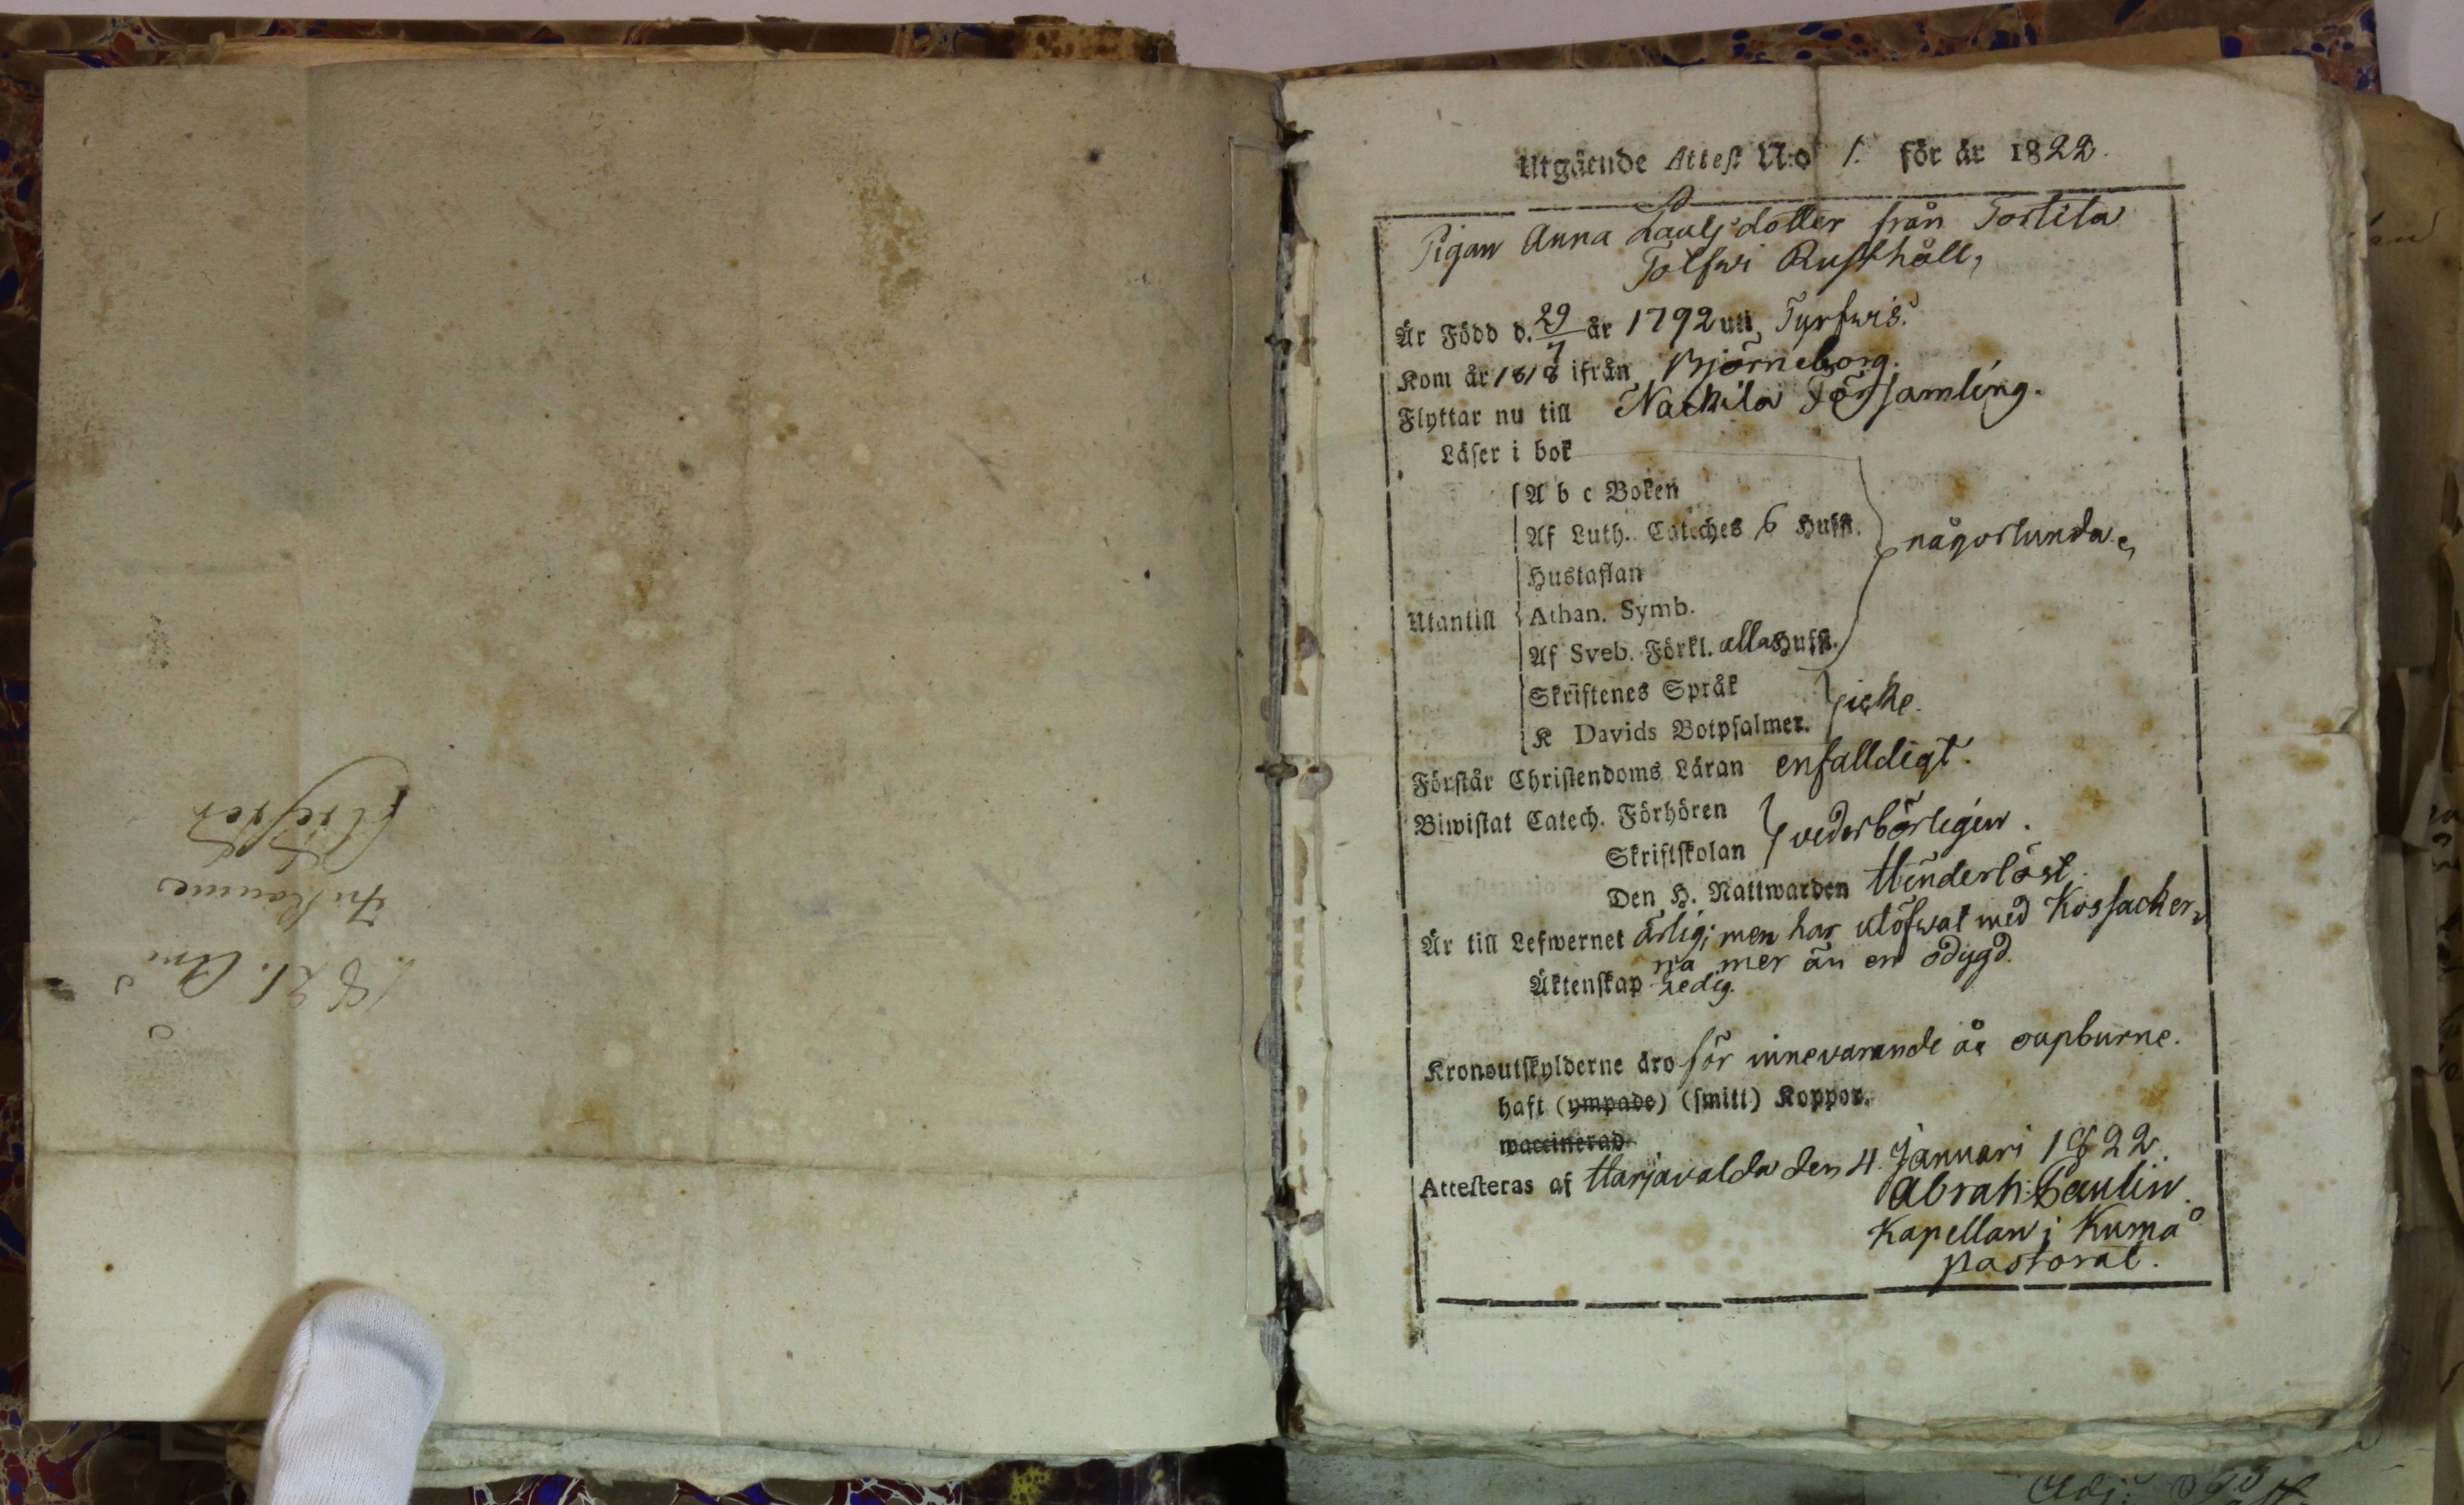 1821. Ani
In komne
Attester
Utgående Attest N:o 1. för år 1822.
Pigan Anna Paulsdotter från Torlila
Tolfwi Rusthåll,
Är Född d. 29/7 år 1792 uti Tyrfwis.
Kom år 1818 ifrån Björneborg.
Flyttar nu till Nackila Församling.
Läser i bok
A b c Boken
Af Luth. Cateches 6 Hufst. någorlunda,
Hustaflan
Utantill Athan. Symb.
Af Sveb. Förkl. alla Hufst.
Skriftenes Språk icke.
K Davids Botpsalmer.
Förstår Christendoms Läran enfalldigt.
Biwistat Catech. Förhören vederbörligen.
Skriftskolan
Den H. Nattwarden Hinderlöst.
Är till Lefwernet ärlig; men har utöfwat med Kossacker
na mer än en odygd.
Äktenskap Ledig.
Kronoutskylderne äro för innevarande år oupburne.
haft (ympade) (smitt) Koppor.
waccinerad
Attesteras af Harjavalda den 4. Januari 1822.
Abrah: Paulin.
Kapellan i Kumå
pastorat.